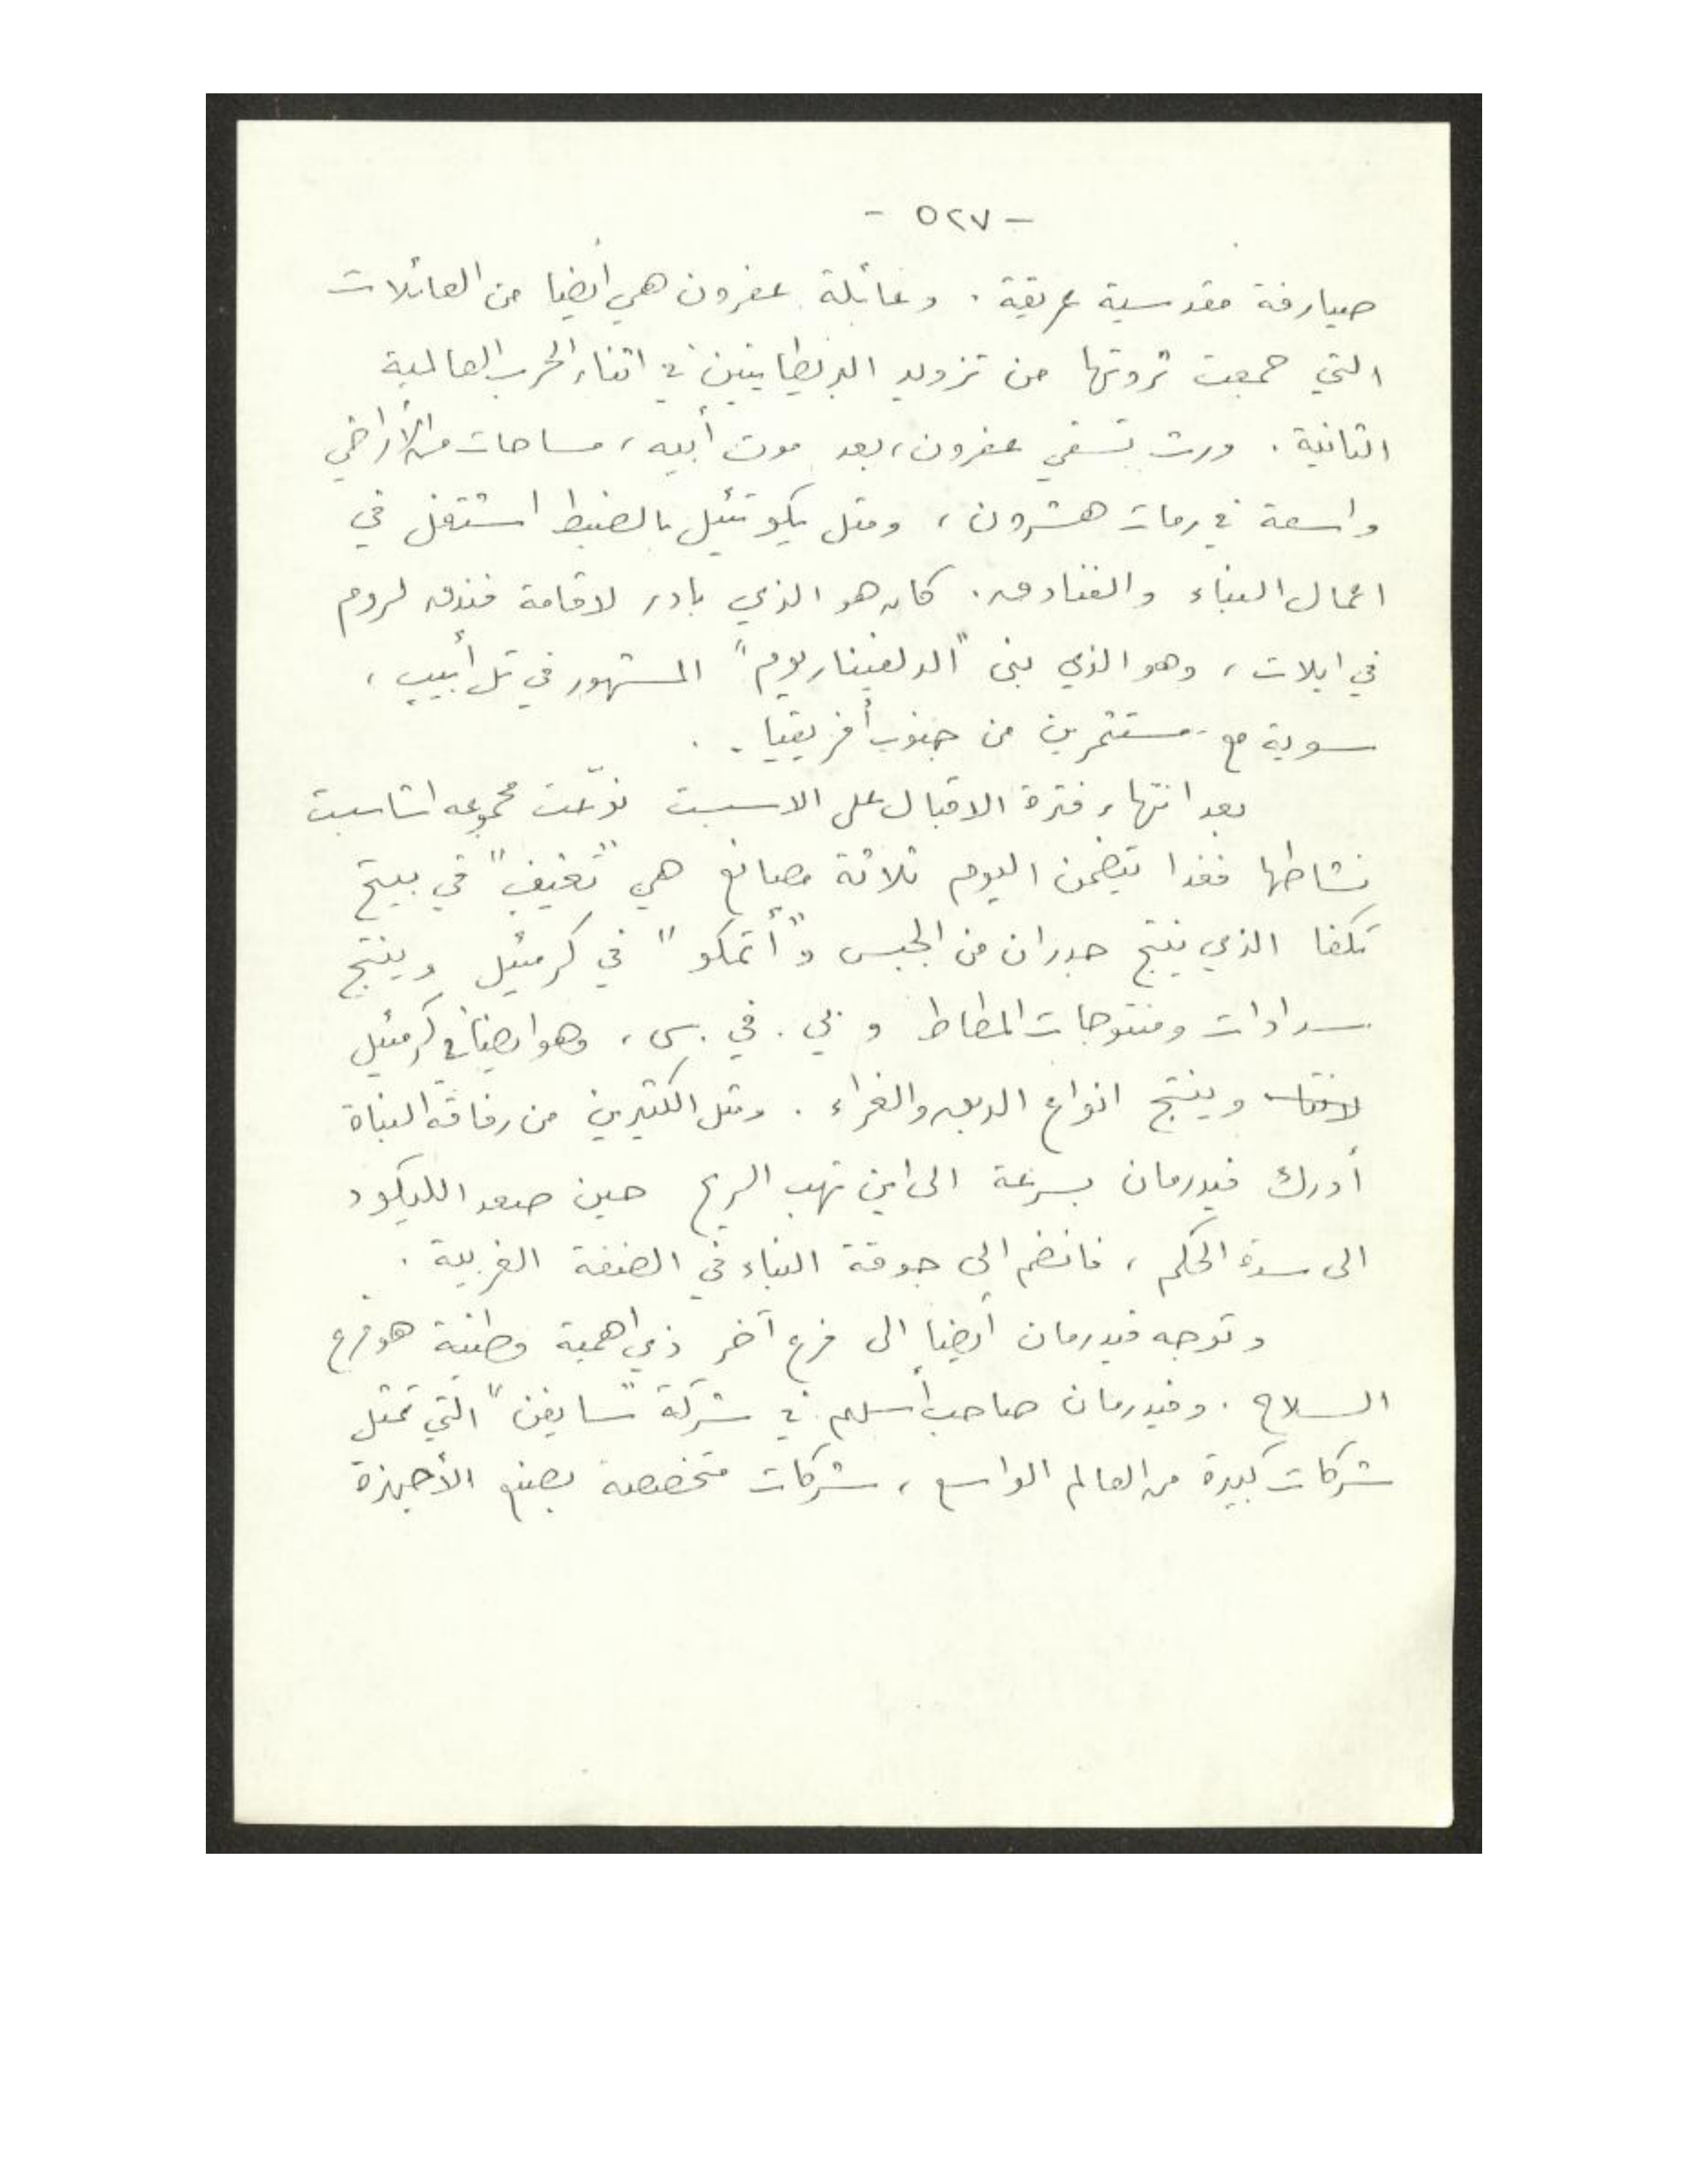 - ٥٢٧ -
صيارفة مقدسية عريقة . وعائلة عفرون هي أيضا من العائلات
التي جمعت ثروتها من تزويد البريطانيين في اثناء الحرب العالمية
الثانية . ورث تسفي عفرون ، بعد موت أبيه ، مساحات من الأراضي
واسعة في رمات هشرون ، ومثل يكوتئيل بالضبط اشتغل في
اعمال البناء والفنادق . كان هو الذي بادر لاقامة فندق لروم
في ايلات ، وهو الذي بنى "الدلفيناريوم" المشهور في تل أبيب ،
سوية مع مستثمرين من جنوب أفريقيا .
بعد انتهاء فترة الاقبال على الاسبست نوّعت مجموعه
نشاطها فغدا يتضمن اليوم ثلاثة مصانع هي "تعفيف" في بيتح
تكفا الذي ينتج جدران من الجبس و "أتمكو" في كرمئيل وينتج
سدادات ومنتوجات المطاط و بي . في . سي ، وهو ايضا في كرمئيل
وينتج انواع الدبق والغراء . ومثل الكثيرين من رفاقه البناة
أدرك فيدرمان بسرعة الى اين تهب الريح حين صعد الليكود
الى سدة الحكم ، فانضم الى جوقة البناء في الضفة الغربية .
وتوجه فيدرمان أيضا الى فرع آخر ذي اهمية وطنية هو فرع
السلاح . وفيدرمان صاحب أسهم في شركة "سايفن" التي تمثل
شركات كبيرة من العالم الواسع ، شركات متخصصة بصنع الأجهزة